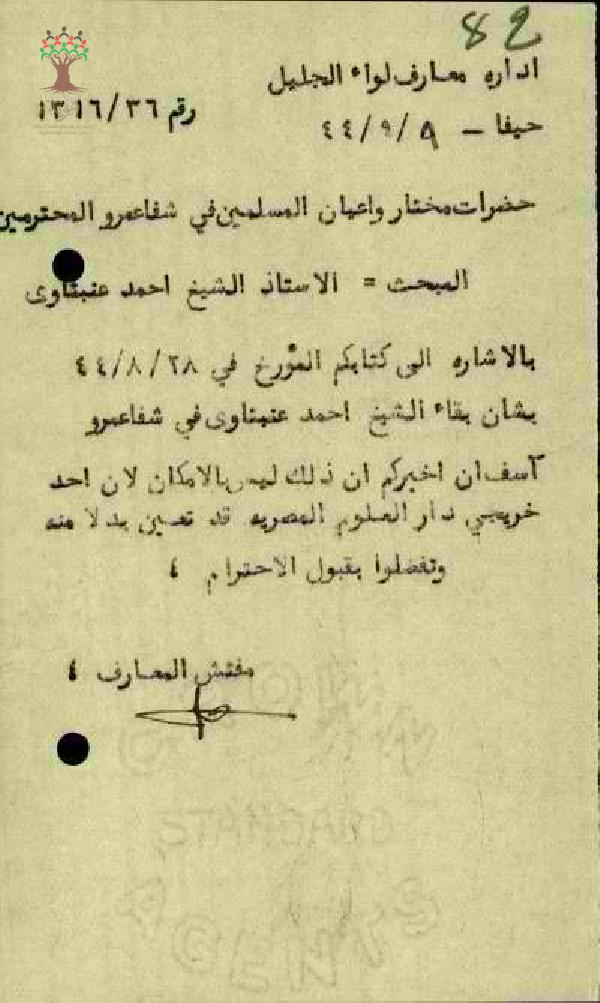 82
اداره معارف لواء الجليل
حيفا - ٤٤/٩/٩
رقم ١٣١٦/٣٦
حضرات مختار واعيان المسلمين في شفاعمرو المحترمين
المبحث = الاستاذ الشيخ احمد عنبتاوى
بالاشاره الى كتابكم المؤرخ في ٤٤/٨/٢٨
بشان بقاء الشيخ احمد عنبتاوى في شفاعمرو
آسف ان اخبركم ان ذلك ليس بالامكان لان احد
خريجي دار العلوم المصريه قد تعين بدلا منه
وتفضلوا بقبول الاحترام ،
مفتش المعارف ،
STANDARD
AGENTS